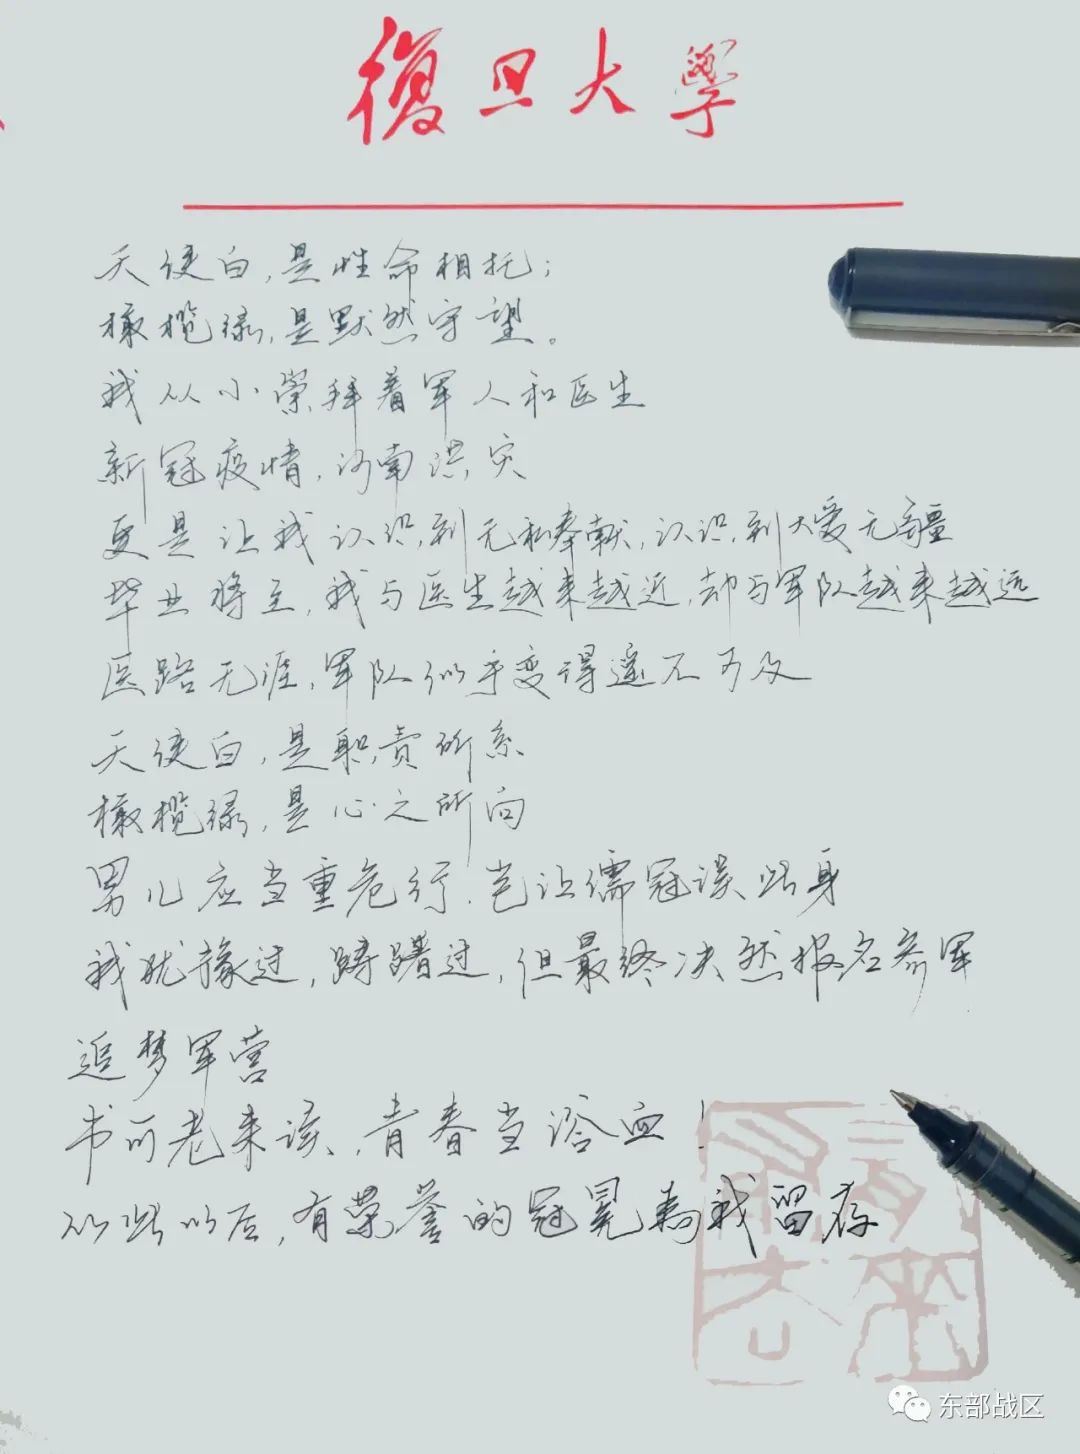 復旦大學
天使白，是性命相托；
橄榄绿，是默然守望。
我从小崇拜着军人和医生
新冠疫情，河南洪灾
更是让我认识到无私奉献，认识到大爱无疆
毕业将至，我与医生越来越近，却与军队越来越远
医路无涯，军队似乎变得遥不可及
天使白，是职责所系
橄榄绿，是心之所向
男儿应当重危行，岂让儒冠误此身
我犹豫过，踌躇过，但最终决然报名参军
追梦军营
书可老来读，青春当浴血！
从此以后，有荣誉的冠冕为我留存
东部战区